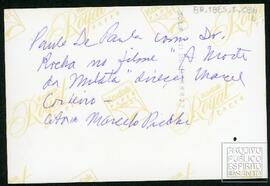 BR.IBES.I.CBM
Paulo De Paula como Dr.
Rocha no filme "A Morte
da Mulata" direção Marcel
Cordeiro -
Marcello
Royal
PAPER
ARQUIVO
PÚBLICO
ESPÍRITO
SANTO